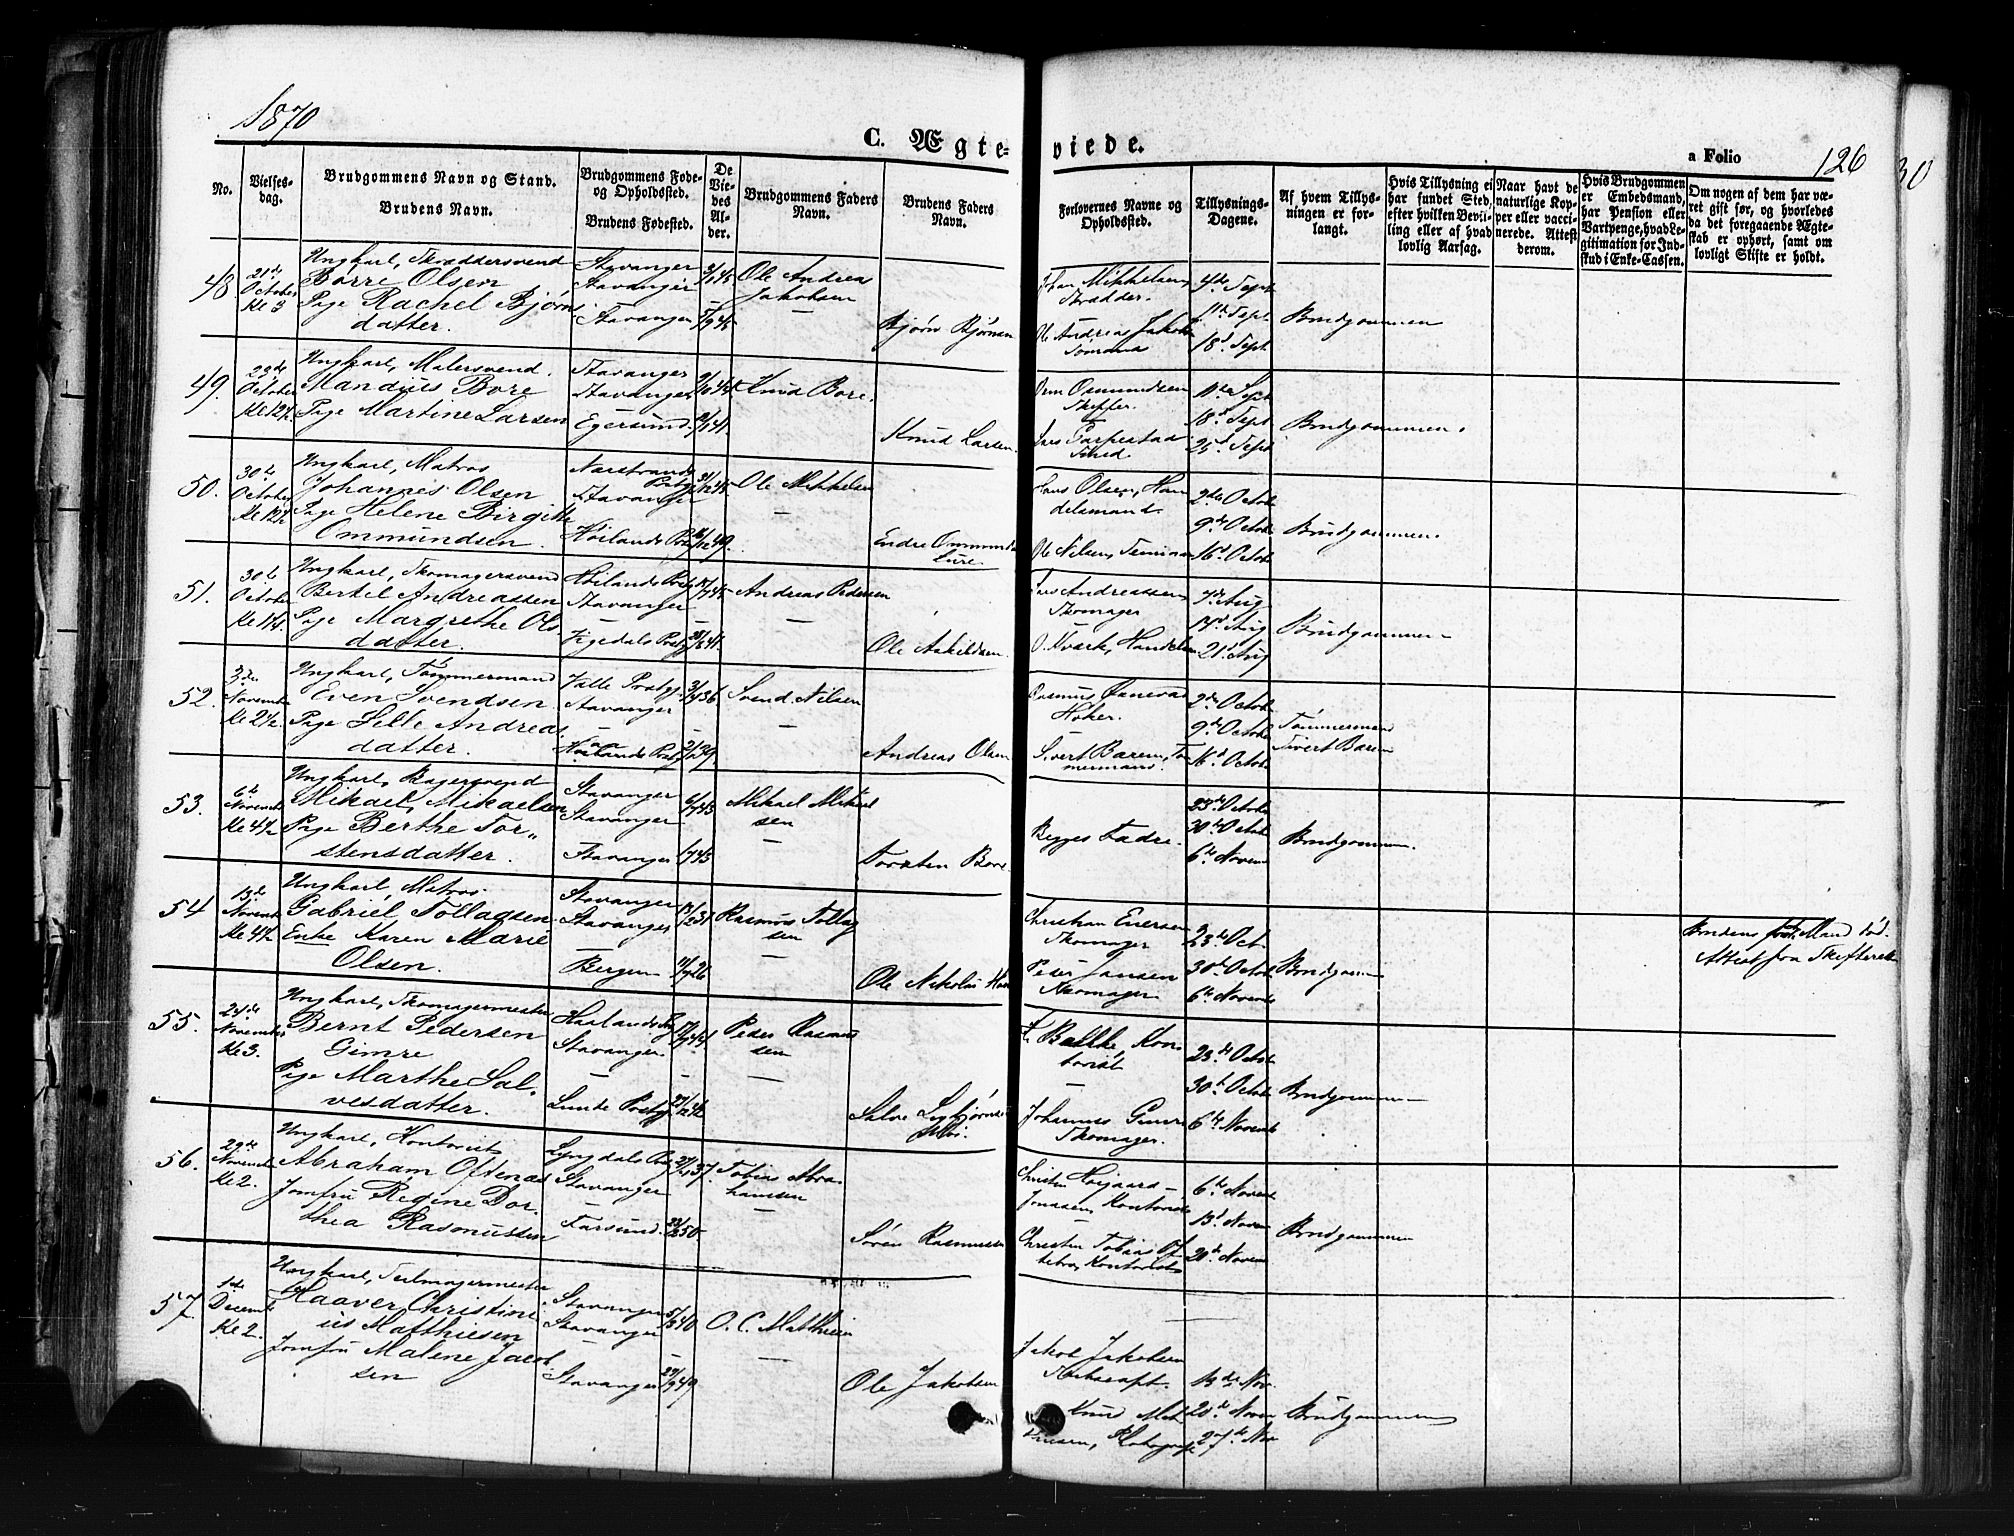 1870
C. Ægteviede.
a Folio
126
30
No.
Vielses-dag.
Brudgommens Navn og Stand.
Brudens Navn.
Brudgommens Føde- og Opholdssted.
Brudens Fødested.
De Viedes Alder.
Brudgommens Faders Navn.
Brudens Faders Navn.
Forlovernes Navne og Opholdssted.
Tillysnings-Dagene.
Af hvem Tillysningen er forlangt.
Hvis Tillysning ei har fundet Sted, efter hvilken Bevilling eller af hvad lovlig Aarsag.
Naar havt de naturlige Kopper eller vaccinerede. Attest derom.
Hvis Brudgommen er Embedsmand, har Pension eller Vartpenge, hvad Legitimation for Indskud i Enke-Cassen.
Om nogen af dem har været gift før, og hvorledes da det foregaaende Ægteskab er ophørt, samt om lovligt Skifte er holdt.
48
21de October Kl 5
Ungkarl, Skræddersvend
Børre Olsen
Pige Rachel Bjørnsdatter.
Stavanger
Stavanger
Stavanger
Ole Andreas Jakobsen
Bjørn Bjørnsen
Mikkelsen, Skrædder.
Ole Andreas Jakobs
4de Sept
11te Sept
18d Sept
Brudgommen
49.
23de October Kl 12½
Ungkarl, Malersvend.
Mandius Bore
Pige Martine Larsen
Stavanger
Stavanger
Egersund
Knud Bore.
Knud Larsen.
Osmundsen
Skipper.
11te Sept
18d Sept
25d Sept
Brudgommen.
50.
30te October
Ungkarl, Matros
Johannes Olsen
Pige Helene Birgitte
Ommundsen.
Nærstrands Præstg
Stavanger
Høilands Præstg
Ole Mikkelsen
Endre Ommunds
Hans Olsen, Handelsmand.
Ole Nilsen,
2den Octob
9de Octob
16d Octob
Brudgommen.
51.
30te October
Ungkarl, Skomagersvend
Bertel Andreassen
Pige Margrethe Olsdatter.
Høilands Præstg
Stavanger
Andreas Pedersen
Ole Askildsen.
Lars Andreassen
Skomager
7de Aug
14d Aug
21d Aug
Brudgommen
52.
3die November Kl 2½
Ungkarl, Tømmermand
Even Svendsen
Pige Andreasdatter.
Valle Præstg.
Stavanger
Høilands Præstg
Svend Nilsen
Andreas Olsen
Rasmus
Høker.
Sivert Barem, Tømmermand.
2den Octob
9de Octob
16d Octob
Tømmermand
Sivert Barem
53.
6te November Kl 4½
Ungkarl, Bagersvend
Mikael Mikaelsen
Pige Berthe Torstensdatter.
Stavanger
Stavanger
Stavanger
Mikael Mikaelsen
Torsten Bore.
Begges Fædre.
23de Octob
30te Octob
6te Novem
Brudgommen.
54
13de November Kl 4½
Ungkarl, Matros.
Gabriel Tollagsen
Enke Karen Marie
Olsen.
Stavanger
Stavanger
Bergen
Rasmus Tollagsen
Ole Nikolai
Christian Eversen
Skomager
Peder Jansen
Skomager
23de Oct.
30te Octob
6te Novemb
Brudgommen
Brudens første Mand død.
Attest fra Skifteret
55.
24de November Kl 3.
Ungkarl, Skomagermester
Bernt Pedersen
Gimre
Pige Marthe Salvesdatter.
Stavanger
Lunde Præstg
Peder Rasmussen
Salve
Balke, Kontorist
Johannes Gimre
Skomager.
23de Octob
30te Octob
6te Novemb
Brudgommen
56.
29de November Kl 2.
Ungkarl, Kontorist
Abraham Oftenæs
Jomfru Regine Dorthea Rasmussen
Lyngdals Præstg
Stavanger
Farsund.
Tobias Abrahamsen
Søren Rasmussen
Christen Høigaard
Jonassen, Kontorist
Christen Tobias
Kontorist
6te Novem
13d Novem
20de Novem
Brudgommen
57.
1ste December Kl 2.
Ungkarl, Seilmagermester
Haaver Christinius Matthiesen
Jomfru Malene Jacobsen
Stavanger
Stavanger
Stavanger
O. C. Matthiesen
Ole Jakobsen
Jakob Jakobsen
Knud Matthiesen, Photograf
13de Nov.
20de Novem
27de Nov
Brudgommen